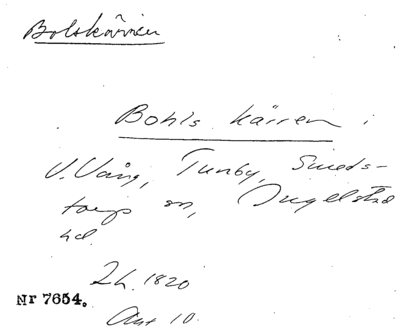 Bolskärren
Bohls kärren i
V. Vång, Tunby, Smeds-
torps sn, Ingelstad
hd.
Lh. 1820
Nr 7654.
Akt 10.